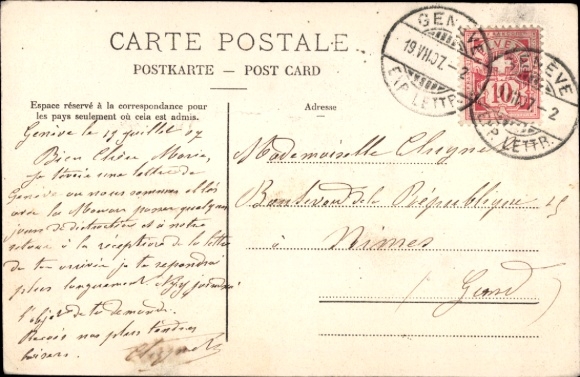 CARTE POSTALE
POSTKARTE — POST CARD
Espace réservé à la correspondance pour
les pays seulement où cela est admis.
Adresse
GENÈVE
19.VII.07.-2
EXP. LETTR.
GENÈVE
VII.07.-2
EXP. LETTR.
10
Genève le 19 juillet 07
Bien Chère Marie,
Je t'envoie une lettre de
Genève où nous sommes allés
avec la Maman passer quelques
jours de distraction et à notre
retour à la réception de la lettre
de ton je te repondrai
plus longuement
l'objet de ta demande.
Reçois nos plus tendres
baisers.
Mademoiselle
Boulevard de la République 15
à Nimes
(Gard)